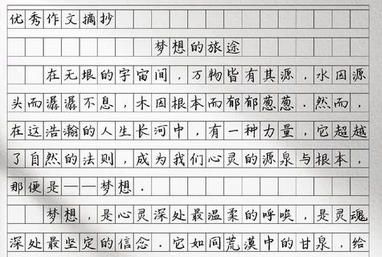 优秀作文摘抄
梦想的旅途
在无垠的宇宙间，万物皆有其源，水因源
头而潺潺不息，木因根本而郁郁葱葱．然而，
在这浩瀚的人生长河中，有一种力量，它超越
了自然的法则，成为我们心灵的源泉与根本，
那便是——梦想．
梦想，是心灵深处最温柔的呼唤，是灵魂
深处最坚定的信念．它如同荒漠中的甘泉，给